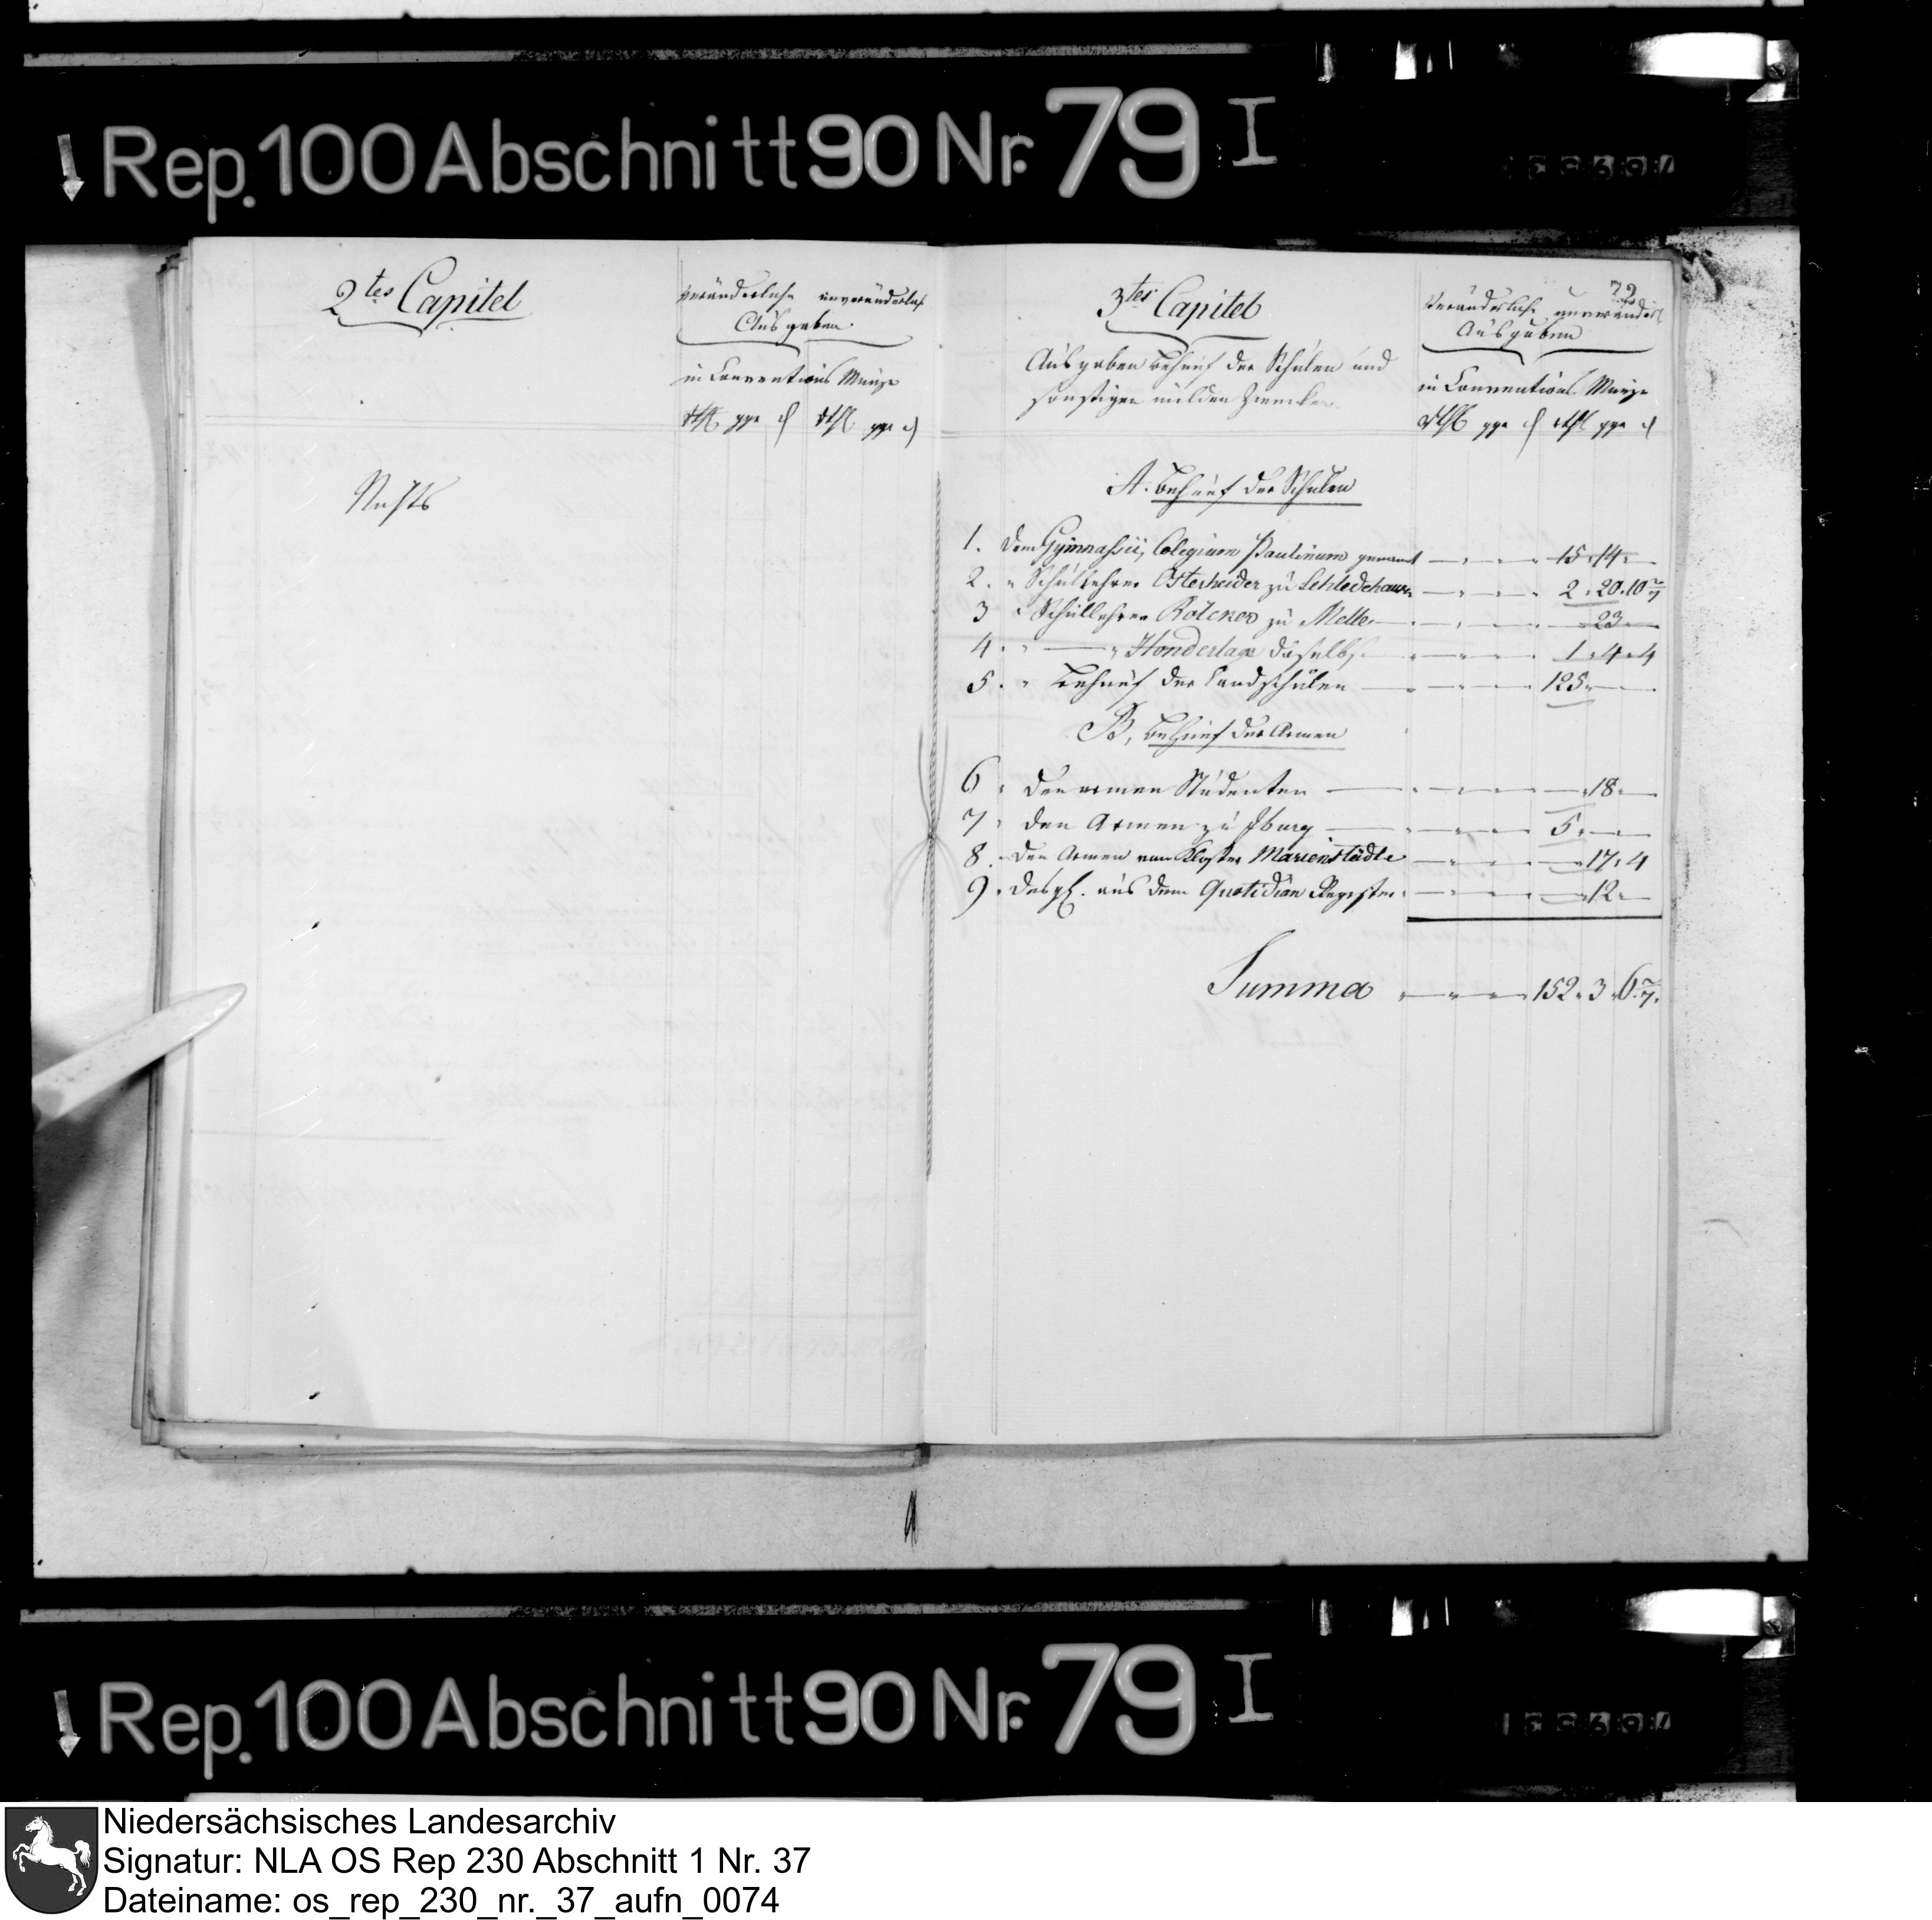 Rep. 100 Abschnitt 90 Nr. 79 I
2tes Capitel
veränderliche unveränderlich
Ausgaben
in Conventions Münze
rthl ggr ₰ rthl ggr ₰
Nichts
72
3tes Capitel
Veränderliche unveränderl
Ausgaben
Ausgaben Behuef der Schulen und
sonstigen milden Zwecken
in Conventions Münze
rthl ggr ₰ rthl ggr ₰
A. Behuef der Schulen
1. Dem Gymnasii, Colegium Paulinum genannt 15 . 14 . —
2. " Schullehrer Osterheider zu Schledehausen 2 . 20 . 10 2/7
3 " Schullehrer Rölcker zu Melle — 23 . —
4. " — " Honderlage daselbst 1 . 4 . 4
5. " Behuef der Landschulen 125 . — . —
B, Behuef der Armen
6 . Den armen Studenten — . 18 . —
7 . Den Armen zu Iburg 5 . — . —
8 . Den Armen vom Kloster Marienstädte — . 17 . 4
9 . Desgl. aus dem Quotidian Register — . 12 . —
Summa 152 . 3 . 6 2/7 .
Rep. 100 Abschnitt 90 Nr. 79 I
Niedersächsisches Landesarchiv
Signatur: NLA OS Rep 230 Abschnitt 1 Nr. 37
Dateiname: os_rep_230_nr._37_aufn_0074